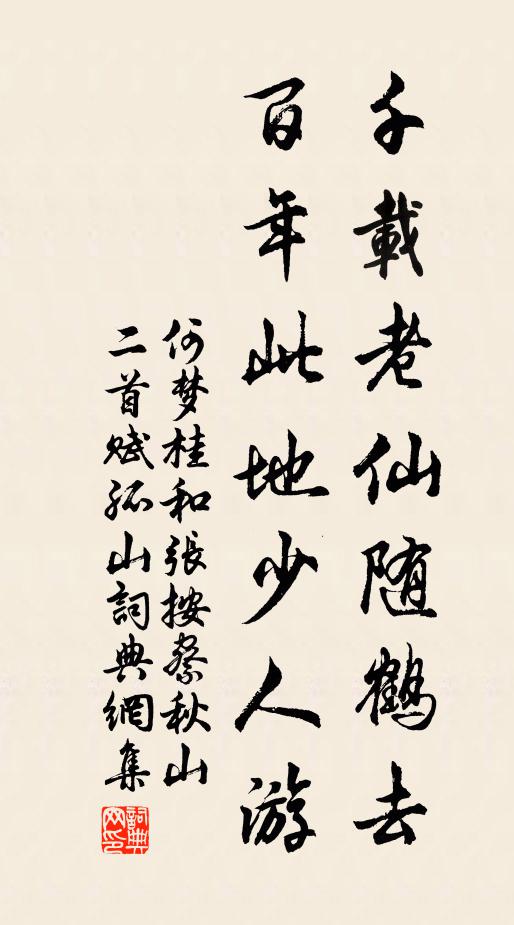 千載老仙随鹤去
百年此地少人游
何梦桂和張按察秋山
二首赋孤山詞典網集
詞典
网印